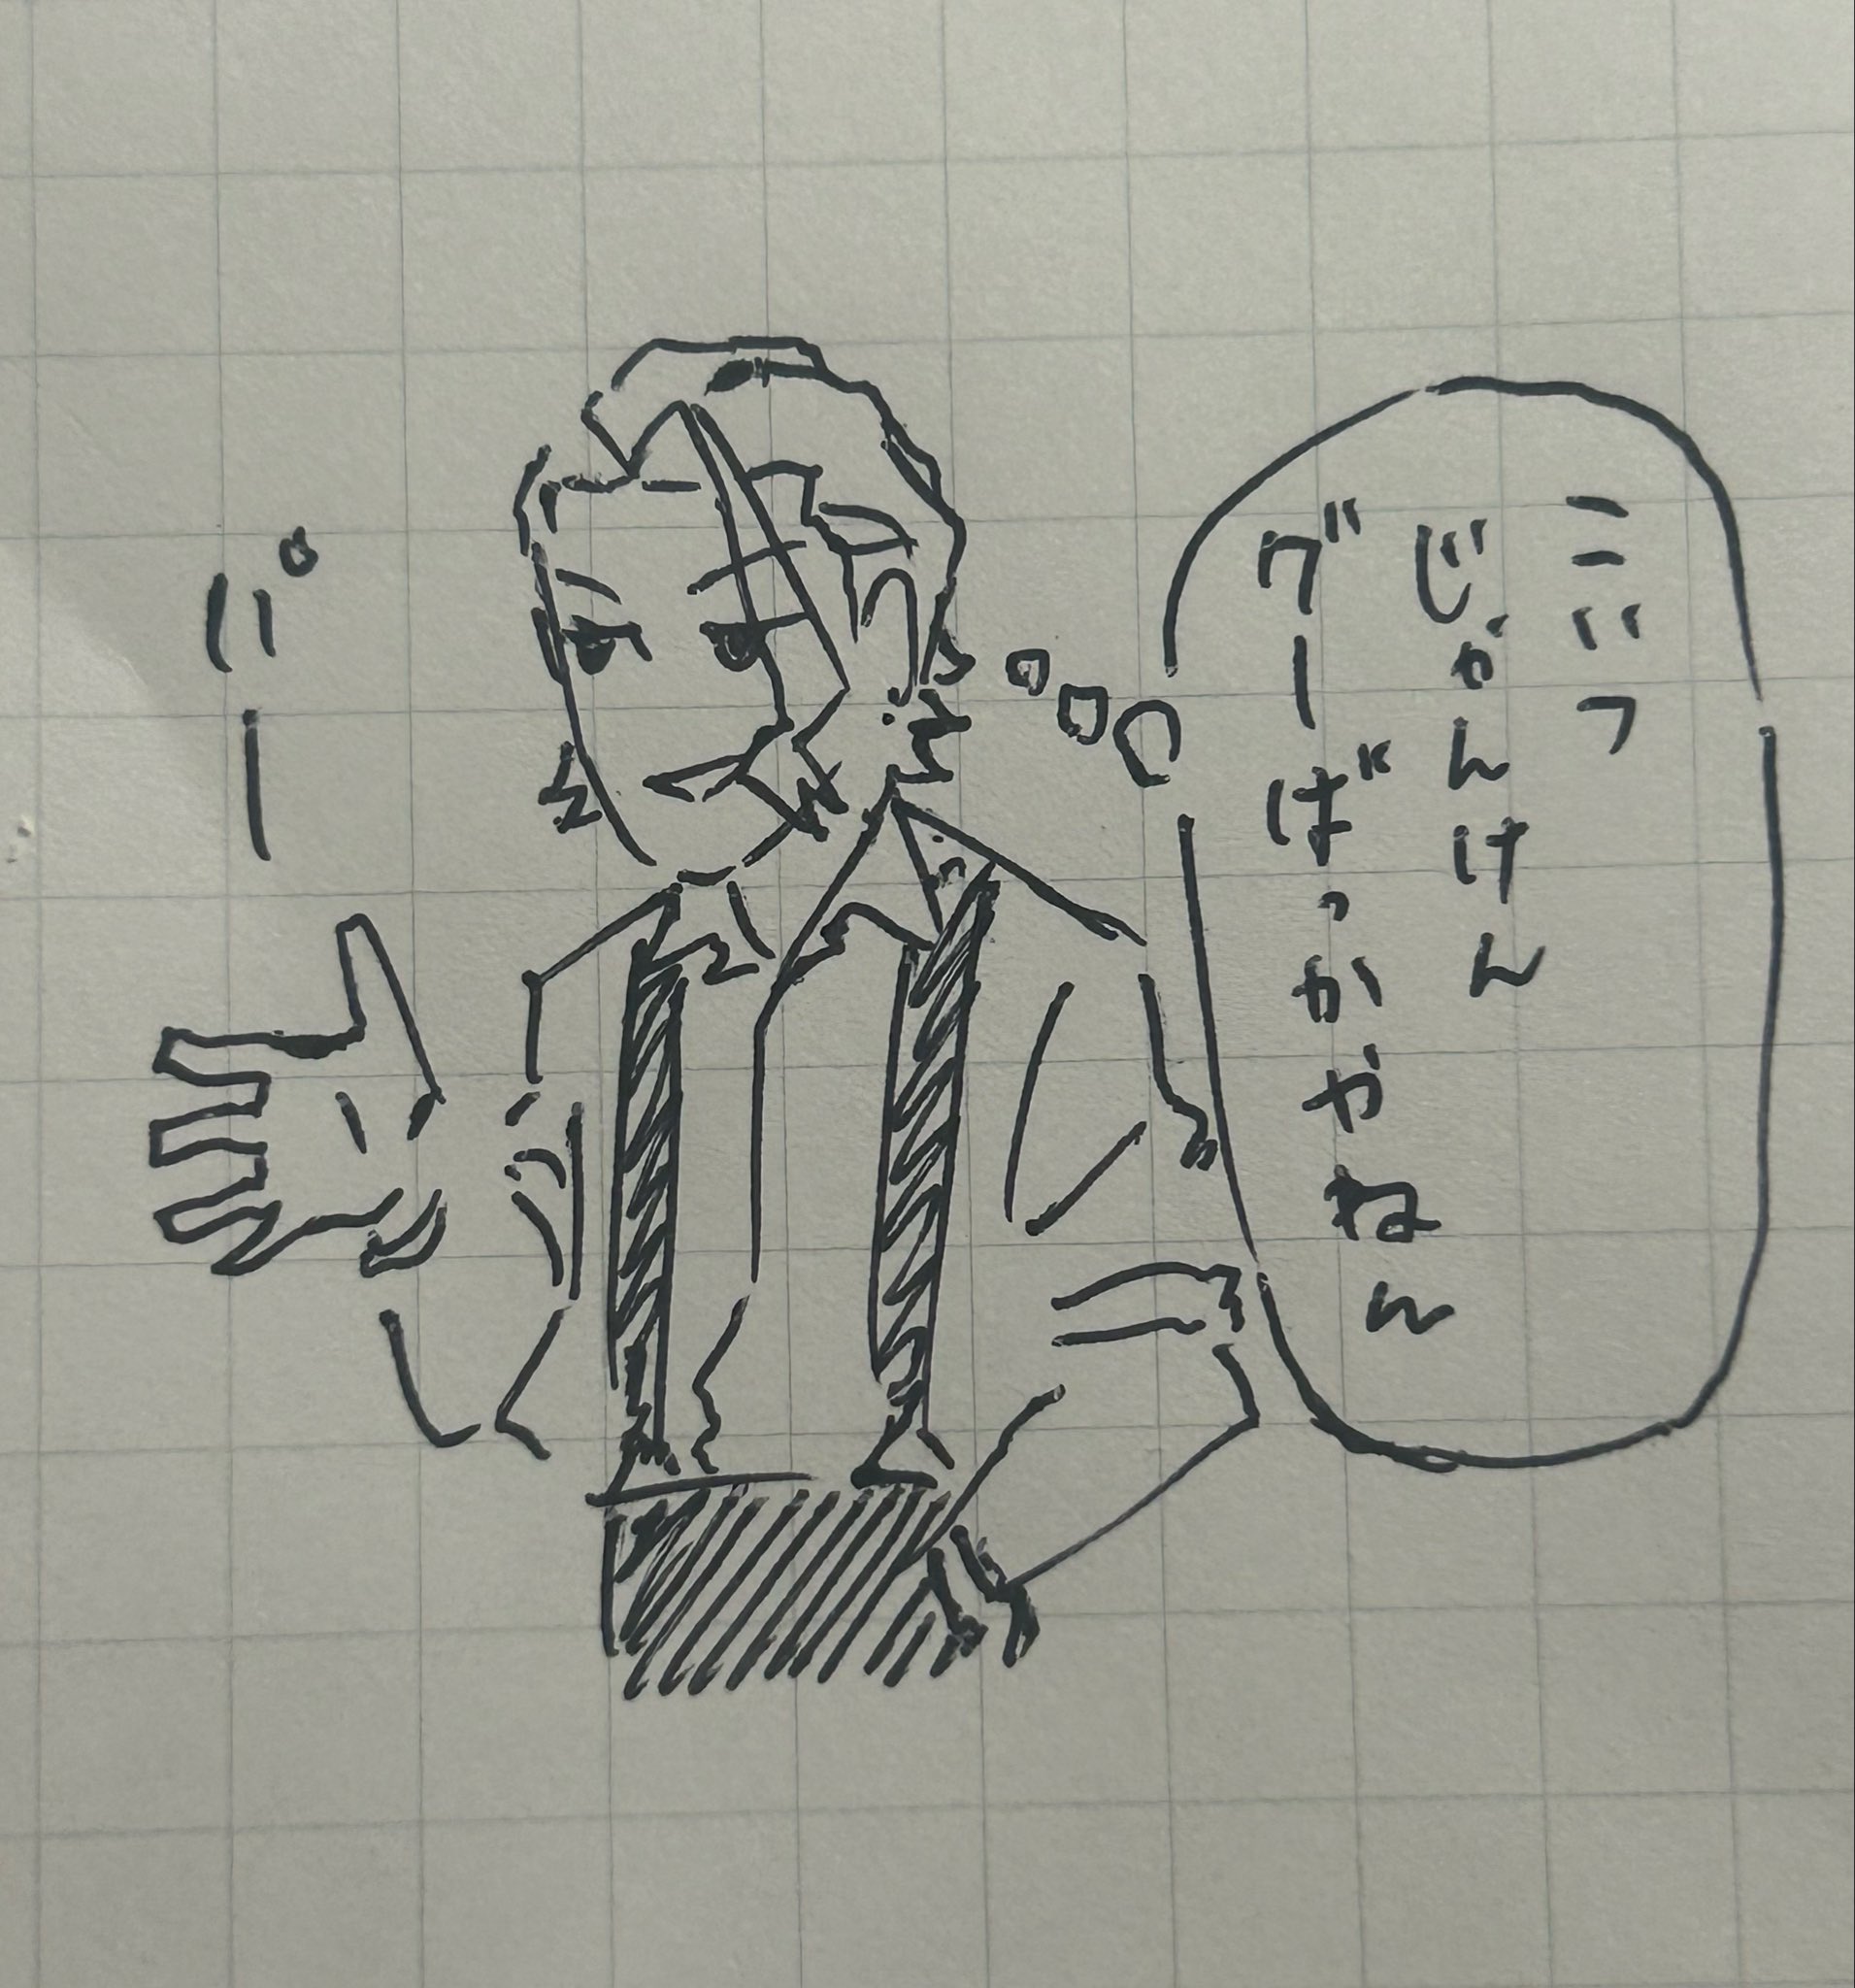 こいつ
じゃんけん
グーばっかやねん
パー